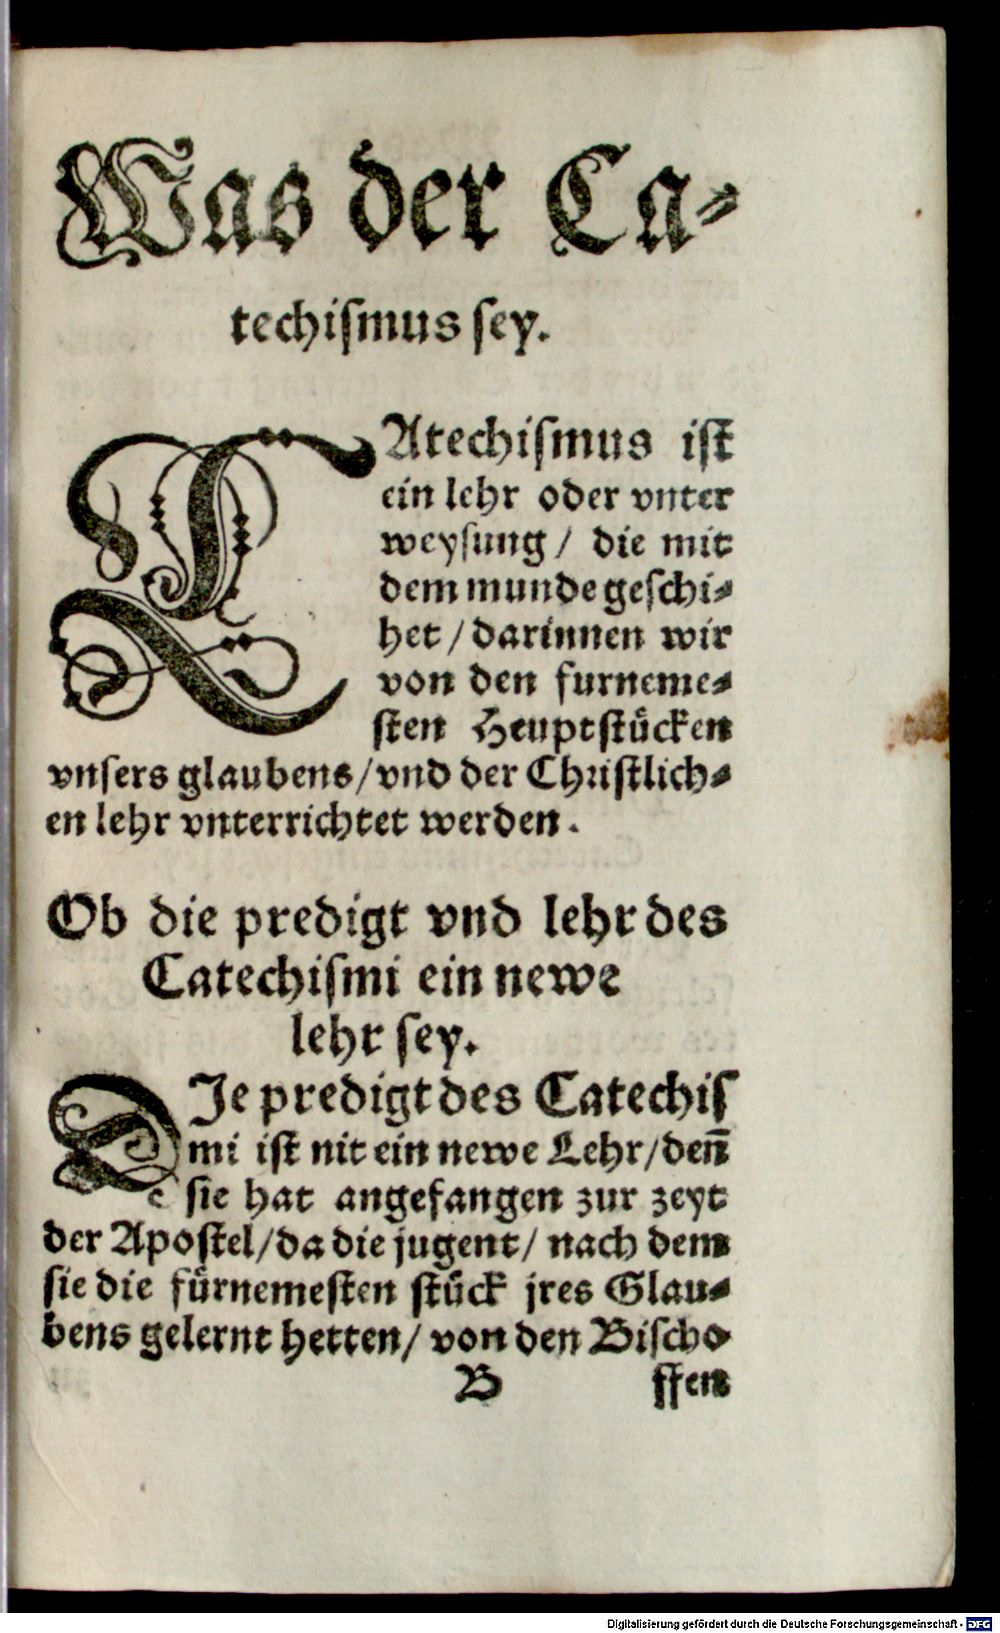 Was der Ca⸗
techiſmus ſey.
CAtechiſmus iſt
ein lehr oder vnter
weyſung / die mit
dem munde geſchi⸗
het / darinnen wir
von den furneme⸗
ſten Heuptſtücken
vnſers glaubens / vnd der Chriſtlich⸗
en lehr vnterrichtet werden.
Ob die predigt vnd lehr des
Catechiſmi ein newe
lehr ſey.
DJe predigt des Catechiſ
mi iſt nit ein newe Lehr / den̄
ſie hat angefangen zur zeyt
der Apoſtel / da die jugent / nach dem
ſie die fürnemeſten ſtück jres Glau⸗
bens gelernt hetten / von den Biſcho⸗
B ffen
Digitalisierung gefördert durch die Deutsche Forschungsgemeinschaft - DFG